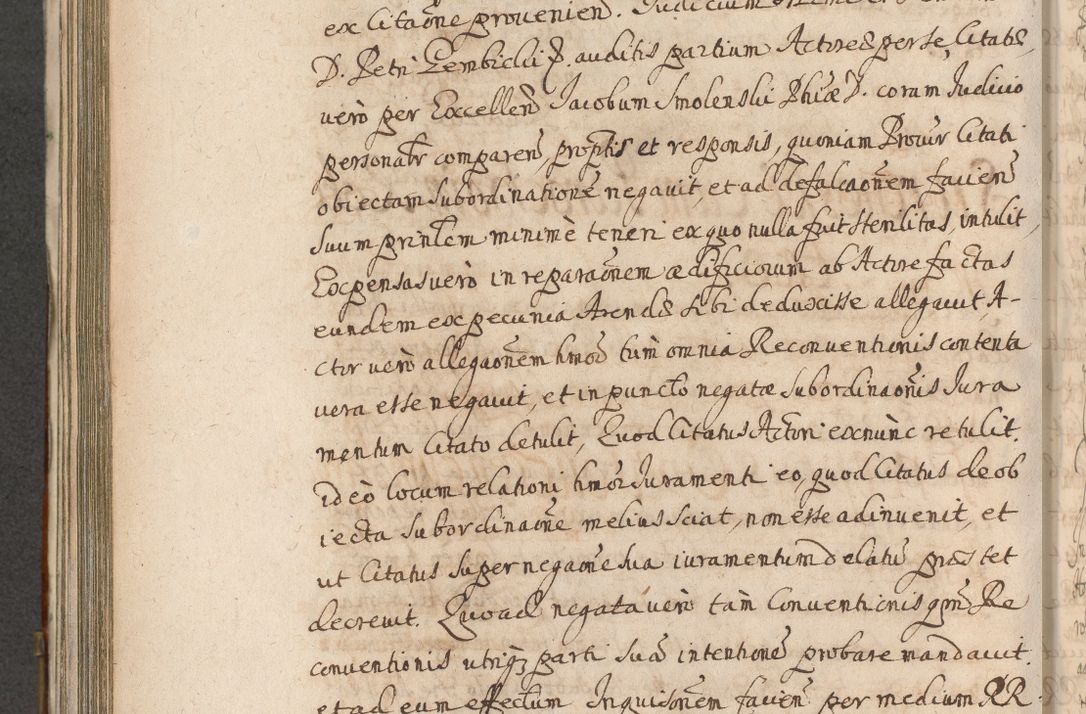 ex Citaõne provenien̄. Iudicium
D. Petri Gembicki P. auditis partium Actore per se, Citatõ
verò per Excellen̄ Jacobum Smolenski Phiæ D. coram Iudicio
personalr̄ comparen̄ proptis et responsis, quoniam Procur̄ Citati
obiectam subordinationē negavit, et ad defalcaõnem facien̄
suum prin̄lem minimè teneri ex quo nulla fuit sterilitas, intulit,
Expensas verò in reparaõnem ædificiorum ab Actore factas
eundem ex pecunia Arendæ sibi deduxisse allegavit, A-
ctor verò allegaõnem hmōi tum omnia Reconventionis contenta
vera esse negavit, et in puncto negatæ subordinaõnis Iura
mentum Citato detulit, Quod Citatus Actori exnunc retulit.
ideò locum relationi hmōi Iuramenti eo, quod Citatus de ob
iecta subordinaõne melius sciat, non esse adinvenit, et
ut Citatus super negaõne sua iuramentum delatū præstet
decrevit. Quoad negata verò tam Conventionis qm̄ Re
conventionis utriq; parti suā intentionē probare mandavit.
et ad eum effectum Inquisõnem facien̄ per medium RR